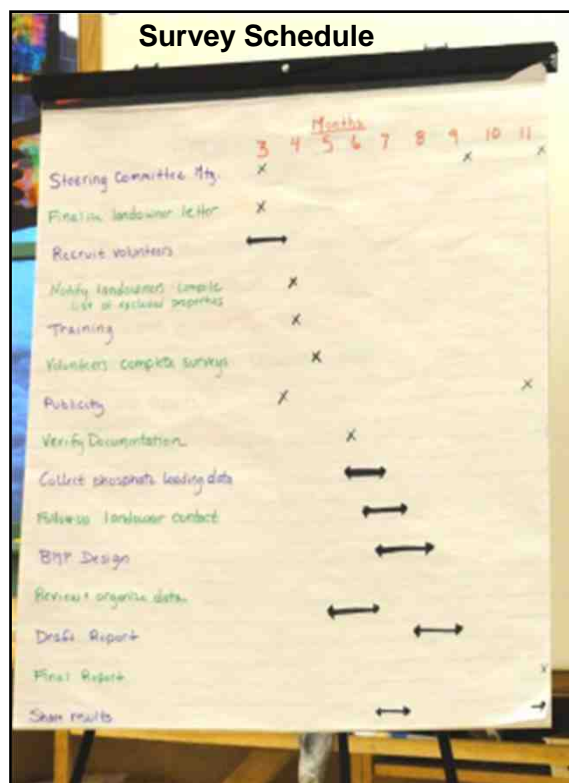 Survey Schedule
Months
3 4 5 6 7 8 9 10 11
Steering Committee Mtg. x x x
Finalize landowner letter x
Recruit volunteers
Notify landowners compile x
list of excluded properties
Training x
Volunteers complete surveys x
Publicity x x
Verify Documentation x
Collect phosphate loading data
Follow-up landowner contact
BMP Design
Review + organize data
Draft Report
Final Report x
Share results